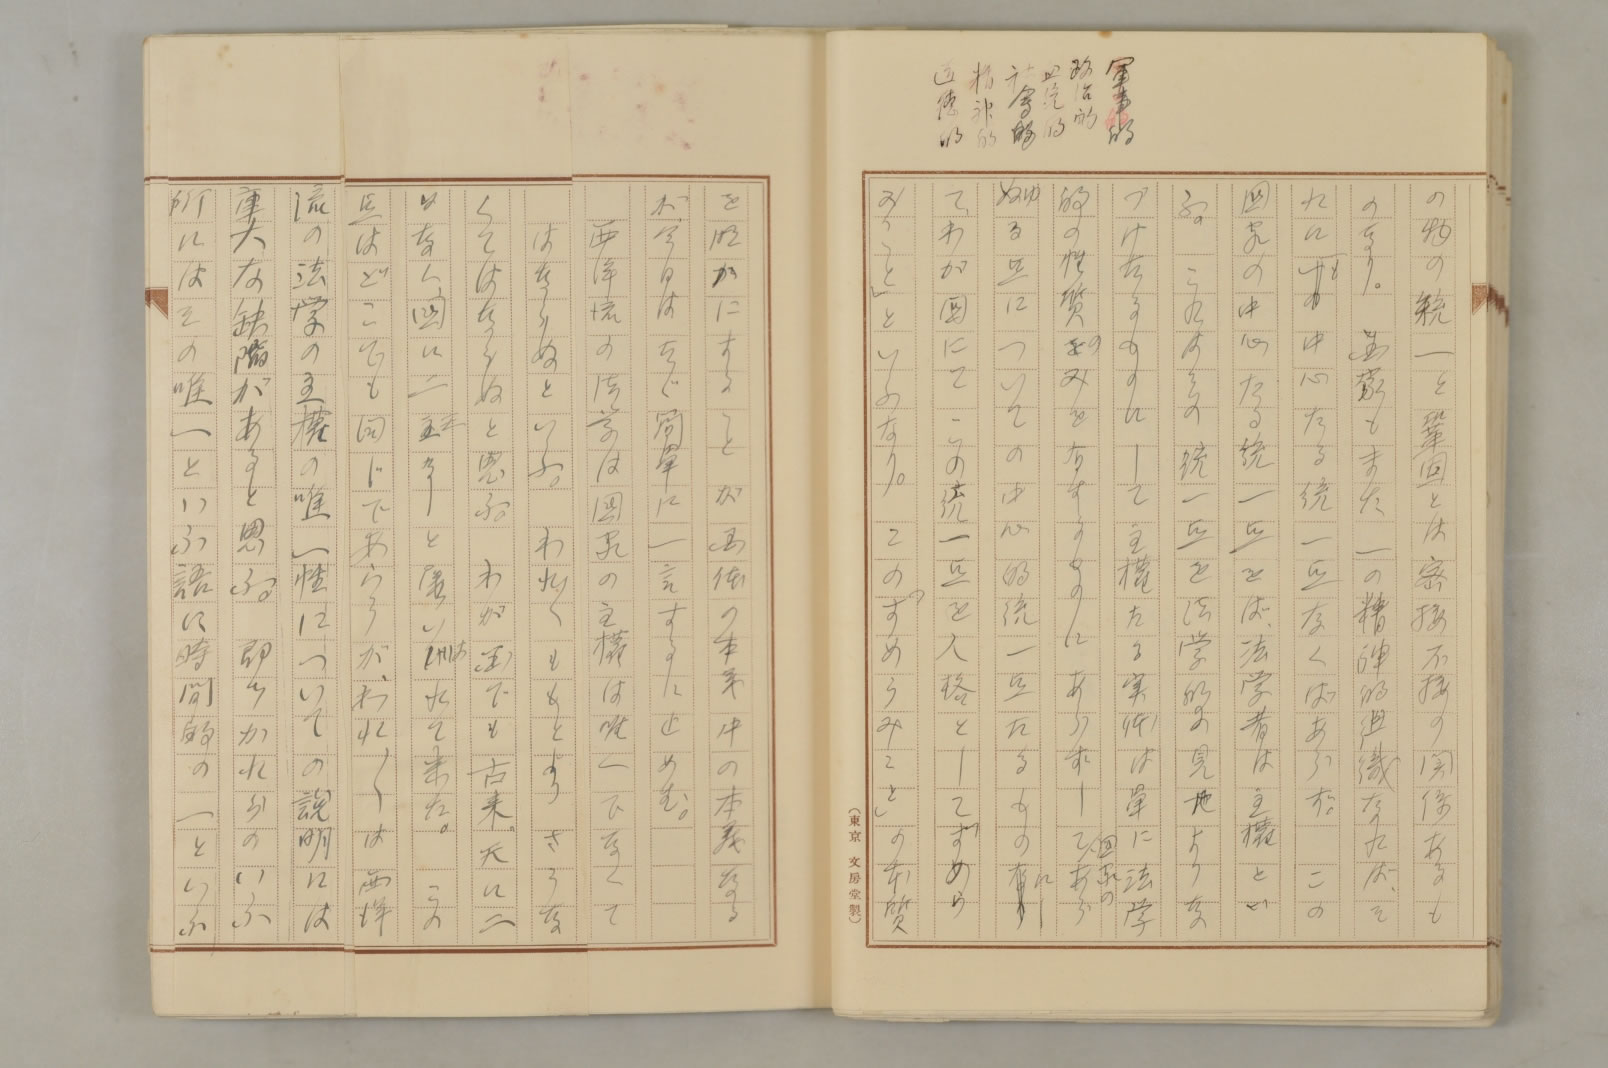 軍事的
政治的
血統的
社會的
精神的
道徳的
の物の統一と鞏固とは密接不接の関係あるも
のなり。国家もまた一の精神的組織なれば、そ
れにも中心たる統一点なくばあらず。この
国家の中心たる統一点をば、法学者は主権とい
ふ。これはその統一点を法学的の見地よりな
づけたるものにして主権たる実体は単に法学
的の性質のみを有するものにあらずして、国家のあら
ゆる点についての中心的統一点たるものにし
て、わが国にてこの統一点を人格として「すめら
みこと」といふなり。この「すめらみこと」の本質
を明かにすることが国体の本義中の本義なる
が、今日はたゞ簡単に一言するに止めむ。
西洋流の法学は国家の主権は唯一でなくて
はならぬといふ。われ〱ももとよりさうな
くてはならぬと思ふ。わが国でも古来、天に二
日なく、国に二主なしと屢いはれて来た。この
点はどこでも同じであらうが、われ〱は西洋
流の法学の主権の唯一性についての説明には
重大な缺陥があると思ふ。即ちかれらのいふ
所にはその唯一といふ語に時間的の一といふ
（東京 文房堂製）